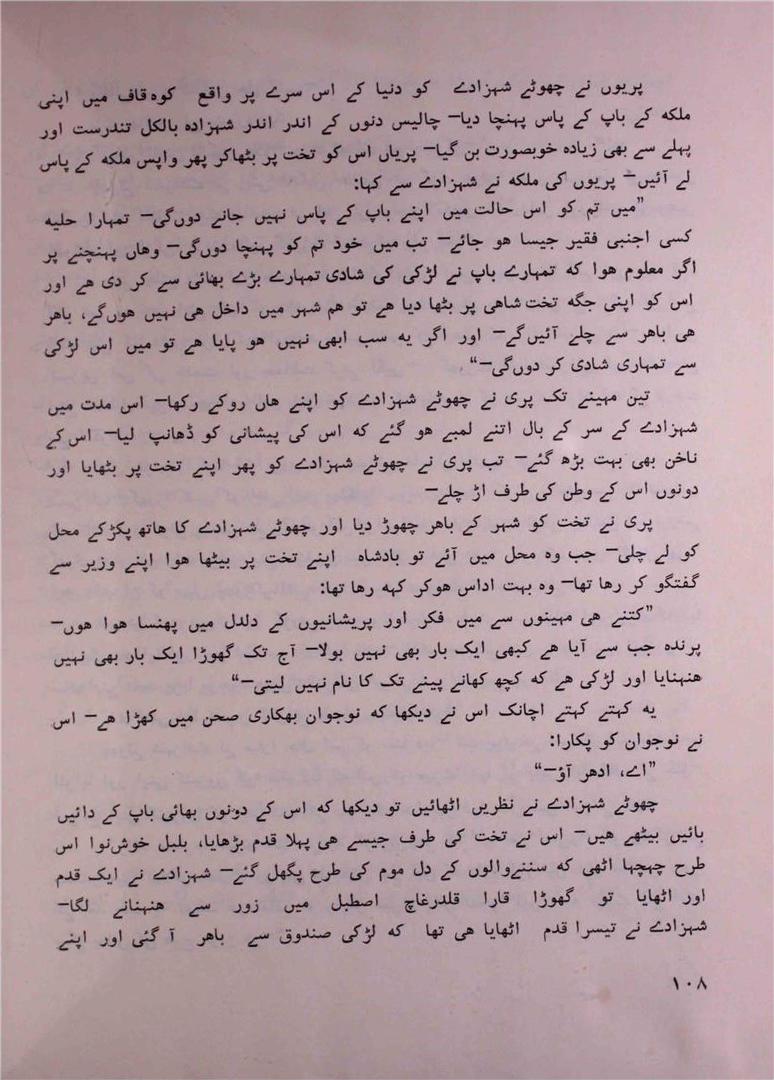 پریوں نے چھوٹے شہزادے کو دنیا کے اس سرے پر واقع کوہ قاف میں اپنی
ملکہ کے باپ کے پاس پہنچا دیا— چالیس دنوں کے اندر اندر شہزادہ بالکل تندرست اور
پہلے سے بھی زیادہ خوبصورت بن گیا— پریاں اس کو تخت پر بٹھاکر پھر واپس ملکہ کے پاس
لے آئیں— پریوں کی ملکہ نے شہزادے سے کہا:
”میں تم کو اس حالت میں اپنے باپ کے پاس نہیں جانے دوں گی— تمہارا حلیہ
کسی اجنبی فقیر جیسا ہو جائے— تب میں خود تم کو پہنچا دوں گی— وہاں پہنچنے پر
اگر معلوم ہوا کہ تمہارے باپ نے لڑکی کی شادی تمہارے بڑے بھائی سے کر دی ہے اور
اس کو اپنی جگہ تخت شاہی پر بٹھا دیا ہے تو ہم شہر میں داخل ہی نہیں ہوں گے، باہر
ہی باہر سے چلے آئیں گے— اور اگر یہ سب ابھی نہیں ہو پایا ہے تو میں اس لڑکی
سے تمہاری شادی کر دوں گی—“
تین مہینے تک پری نے چھوٹے شہزادے کو اپنے ہاں روکے رکھا— اس مدت میں
شہزادے کے سر کے بال اتنے لمبے ہو گئے کہ اس کی پیشانی کو ڈھانپ لیا— اس کے
ناخن بھی بہت بڑھ گئے— تب پری نے چھوٹے شہزادے کو پھر اپنے تخت پر بٹھایا اور
دونوں اس کے وطن کی طرف اڑ چلے—
پری نے تخت کو شہر کے باہر چھوڑ دیا اور چھوٹے شہزادے کا ہاتھ پکڑ کے محل
کو لے چلی— جب وہ محل میں آئے تو بادشاہ اپنے تخت پر بیٹھا ہوا اپنے وزیر سے
گفتگو کر رہا تھا— وہ بہت اداس ہو کر کہہ رہا تھا:
”کتنے ہی مہینوں سے میں فکر اور پریشانیوں کے دلدل میں پھنسا ہوا ہوں—
پرندہ جب سے آیا ہے کبھی ایک بار بھی نہیں بولا— آج تک گھوڑا ایک بار بھی نہیں
ہنہنایا اور لڑکی ہے کہ کچھ کھانے پینے تک کا نام نہیں لیتی—“
یہ کہتے کہتے اچانک اس نے دیکھا کہ نوجوان بھکاری صحن میں کھڑا ہے— اس
نے نوجوان کو پکارا:
”اے، ادھر آؤ—“
چھوٹے شہزادے نے نظریں اٹھائیں تو دیکھا کہ اس کے دونوں بھائی باپ کے دائیں
بائیں بیٹھے ہیں— اس نے تخت کی طرف جیسے ہی پہلا قدم بڑھایا، بلبل خوش نوا اس
طرح چہچہا اٹھی کہ سننے والوں کے دل موم کی طرح پگھل گئے— شہزادے نے ایک قدم
اور اٹھایا تو گھوڑا قارا قلدرغاچ اصطبل میں زور سے ہنہنانے لگا—
شہزادے نے تیسرا قدم اٹھایا ہی تھا کہ لڑکی صندوق سے باہر آ گئی اور اپنے
۱۰۸